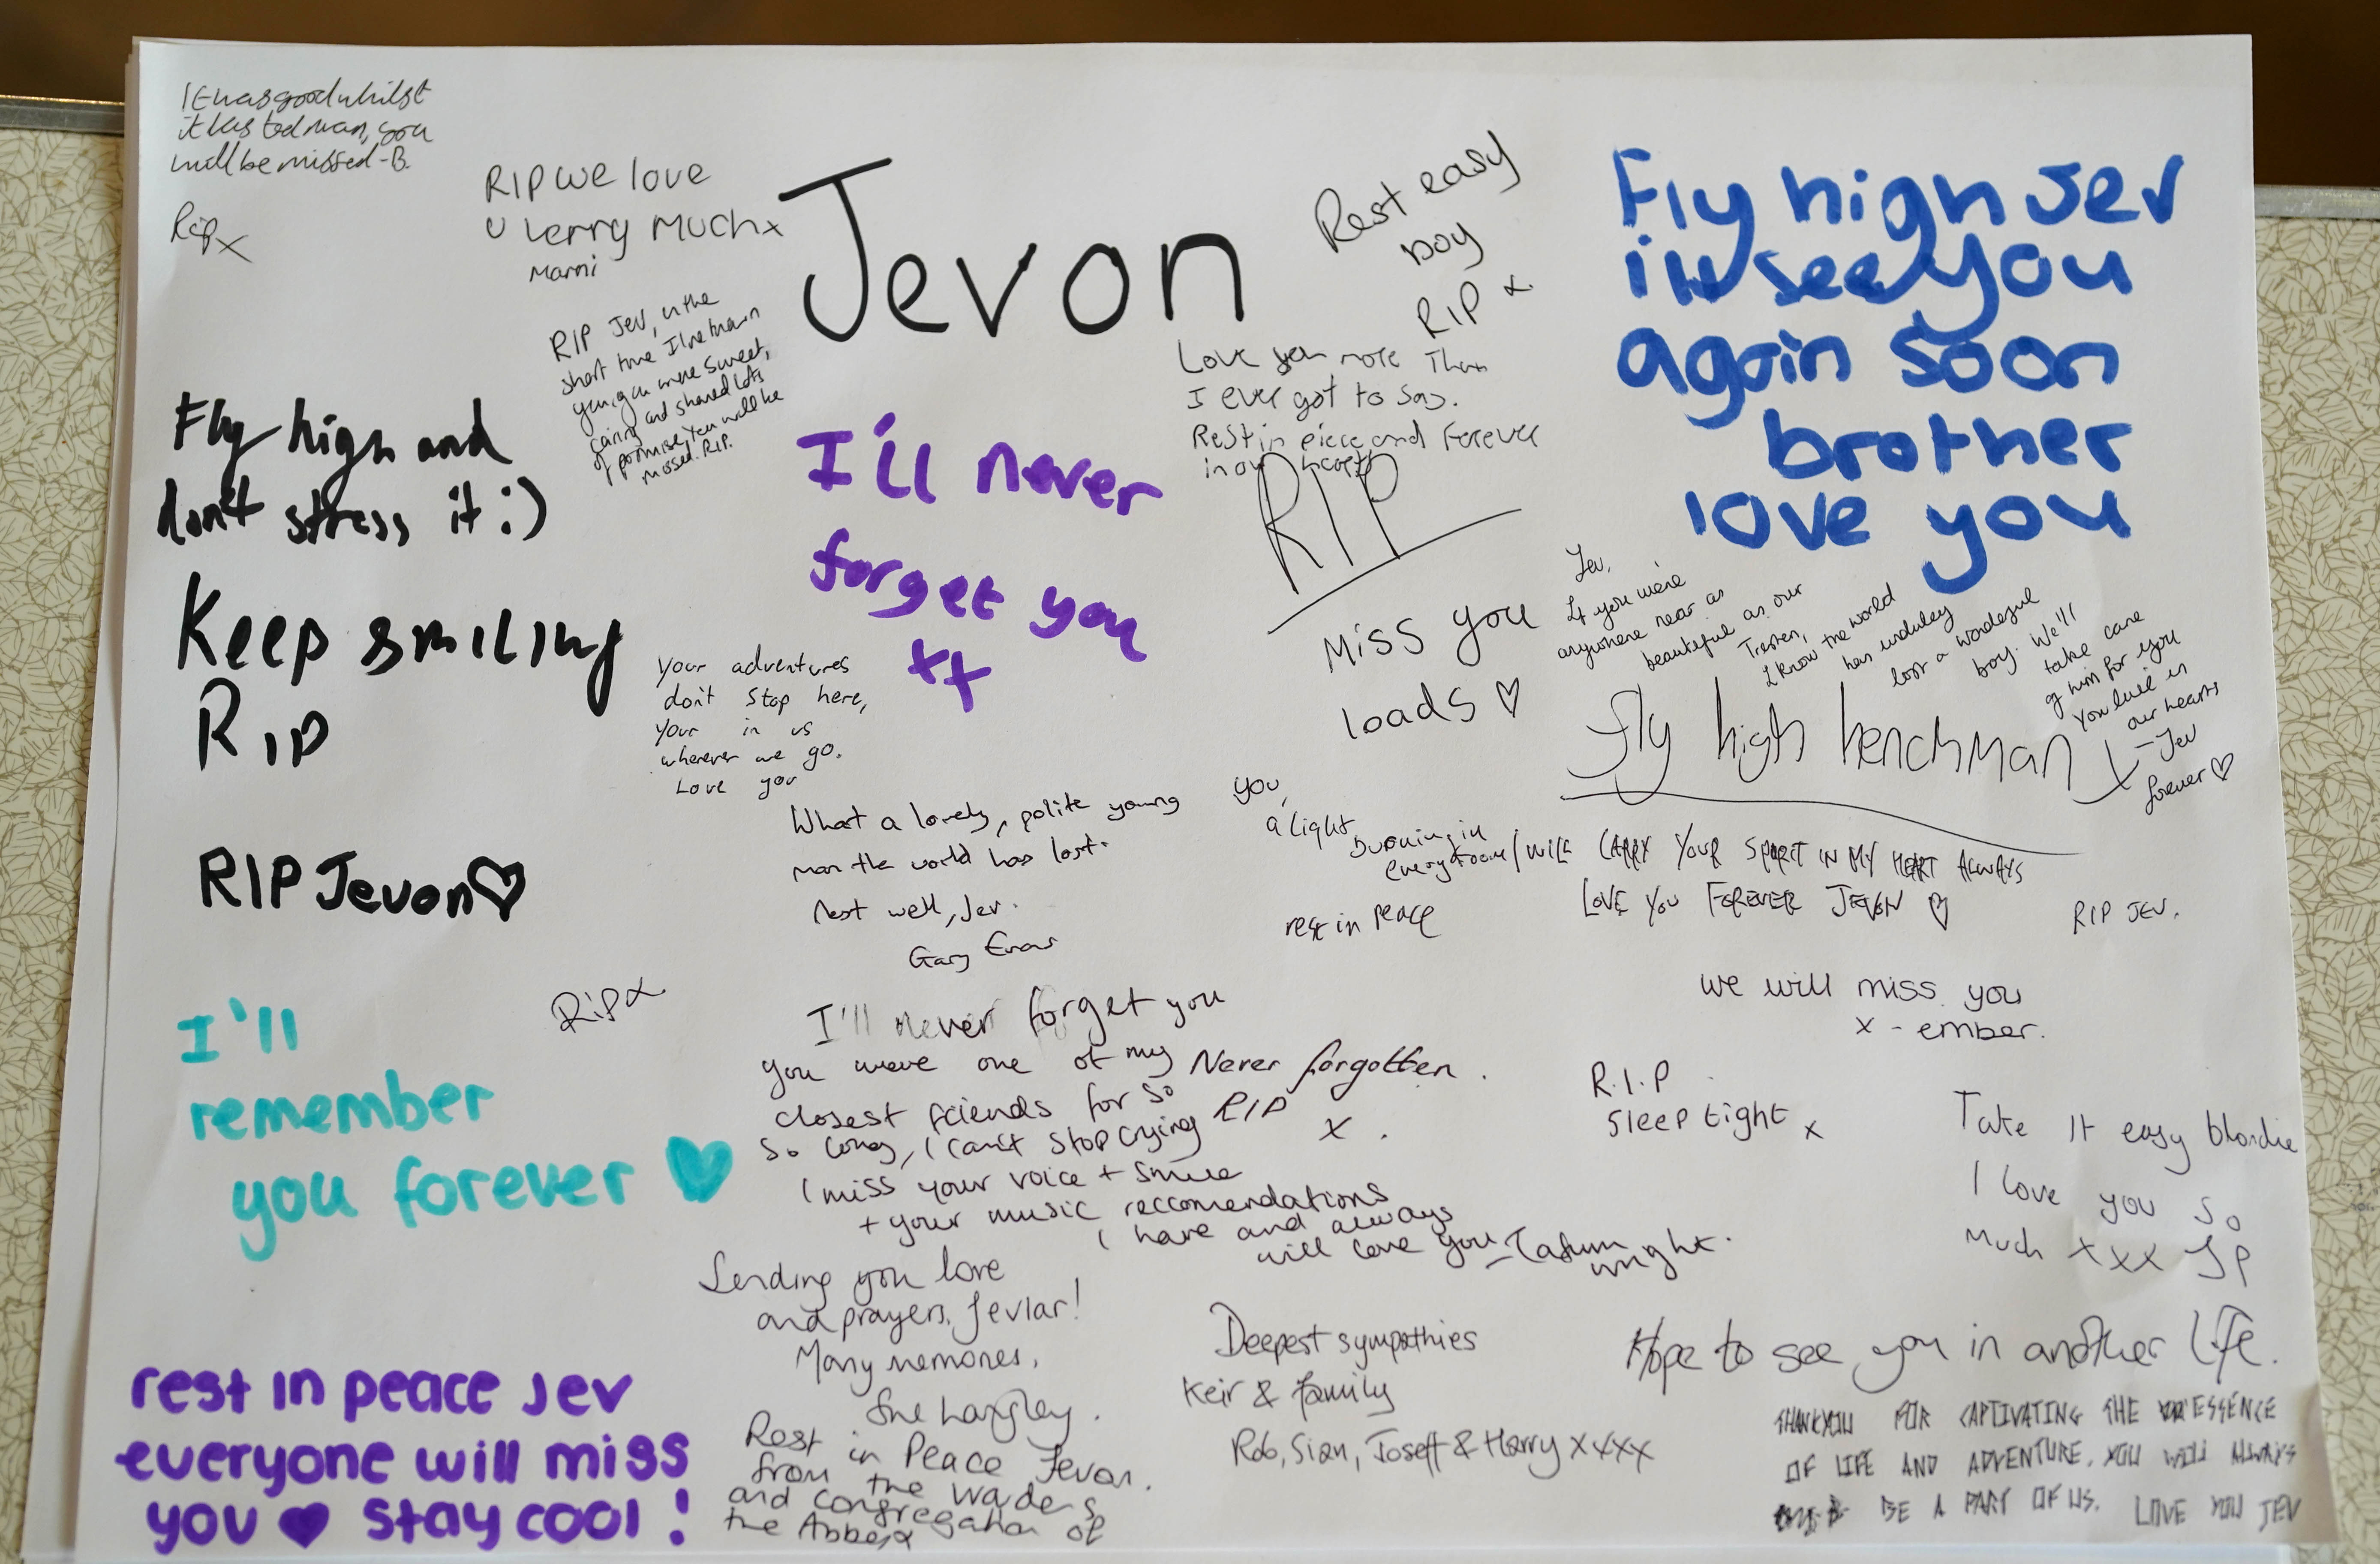 It was good whilst
it lasted man, you
will be missed - B.
Rip x
RIP we love
u verry much x
Marni
Jevon
Rest easy
boy
RIP x
Fly high Jev
i'll see you
again soon
brother
love you
RIP Jev, in the
short time I've known
you, you were sweet,
caring and shared lots
of promise. You will be
missed. RIP.
Love you more than
I ever got to say.
Rest in piece and forever
in our hearts
RIP
Fly high and
don't stress it :)
Keep smiling
RIP
I'll never
forget you
xx
Miss you
loads ♡
Jev,
If you were
anywhere near as
beautiful as our
I know the world
has
lost a
boy. We'll
take care
of him for you
You live in
our hearts
- Jev
forever ♡
Fly high henchman x
Your adventures
don't stop here,
your in us
wherever we go.
Love you
What a lovely, polite young
man the world has lost.
Rest well, Jev.
Gary Evans
you,
a light
burning in
every room
I WILL CARRY YOUR SPIRIT IN MY HEART ALWAYS
LOVE YOU FOREVER JEVON ♡
rest in peace
RIP JEV.
RIP Jevon ♡
Rip x
we will miss you
x - ember.
I'll
remember
you forever ♥
I'll never forget you
you were one of my
closest friends for so
so long, I can't stop crying
I miss your voice + smile
+ your music reccomendations
I have and always
will love you - Tatum
wright.
Never forgotten.
RIP
x.
R.I.P
Sleep tight x
Take it easy blondie
I love you so
much xxx JP
Sending you love
and prayers, Jevlar!
Many memories,
Sue Langley.
Deepest sympathies
Keir & family
Rob, Sian, Joseff & Harry xxxx
Hope to see you in another life.
THANKYOU FOR CAPTIVATING THE ESSENCE
OF LIFE AND ADVENTURE. YOU WILL ALWAYS
BE A PART OF US. LOVE YOU JEV
rest in peace Jev
everyone will miss
you ♥ stay cool!
Rest in Peace Jevon.
from the
and congregation of
the Abbey x